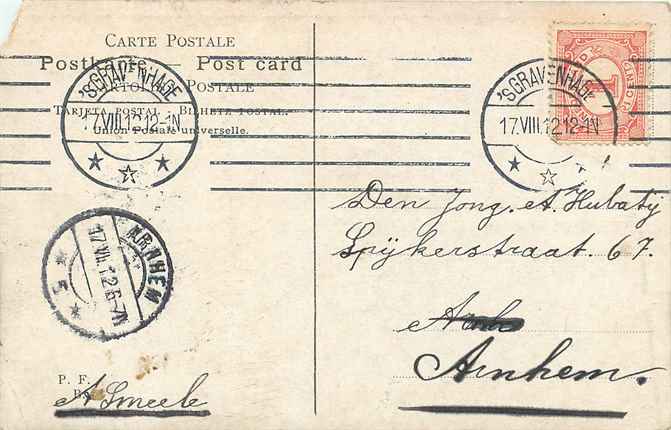 CARTE POSTALE
Postkarte — Post card
POSTALE
TARJETA POSTAL - BILHETE POSTAL.
Union Postale universelle.
'SGRAVENHAGE
17.VIII.12 12-1N
'SGRAVENHAGE
17.VIII.12 12-1N
1
Den Jong. A. Hubatij
Spijkerstraat 67.
Arnhem.
ARNHEM
17.VIII.12 6-7N
5
P. F.
A Smeele